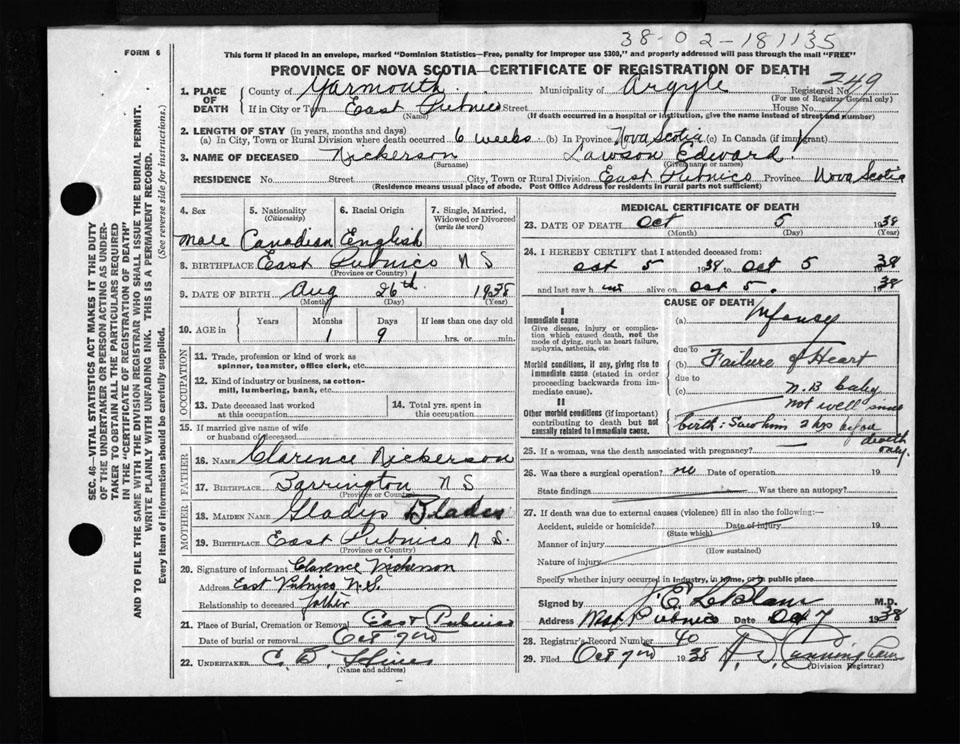 38-02-181135
FORM 6
This form if placed in an envelope, marked "Dominion Statistics—Free, penalty for improper use $300," and properly addressed will pass through the mail "FREE"
PROVINCE OF NOVA SCOTIA—CERTIFICATE OF REGISTRATION OF DEATH
1. PLACE OF DEATH County of Yarmouth Municipality of Argyle Registered No. 249
(For use of Registrar General only)
If in City or Town East Pubnico Street House No.
(Name) (If death occurred in a hospital or institution, give the name instead of street and number)
2. LENGTH OF STAY (in years, months and days)
(a) In City, Town or Rural Division where death occurred 6 weeks (b) In Province Nova Scotia (c) In Canada (if immigrant)
3. NAME OF DECEASED Nickerson Lawson Edward
(Surname) (Given name or names)
RESIDENCE No. Street City, Town or Rural Division East Pubnico Province Nova Scotia
(Residence means usual place of abode. Post Office Address for residents in rural parts not sufficient)
SEC. 46—VITAL STATISTICS ACT MAKES IT THE DUTY
OF THE UNDERTAKER OR PERSON ACTING AS UNDER-
TAKER TO OBTAIN ALL THE PARTICULARS REQUIRED
IN THE "CERTIFICATE OF REGISTRATION OF DEATH"
AND TO FILE THE SAME WITH THE DIVISION REGISTRAR WHO SHALL ISSUE THE BURIAL PERMIT.
WRITE PLAINLY WITH UNFADING INK. THIS IS A PERMANENT RECORD.
Every item of information should be carefully supplied. (See reverse side for instructions.)
4. Sex 5. Nationality (Citizenship) 6. Racial Origin 7. Single, Married, Widowed or Divorced (write the word)
Male Canadian English
8. BIRTHPLACE East Pubnico N S
(Province or Country)
9. DATE OF BIRTH Aug 26th 1938
(Month) (Day) (Year)
10. AGE in Years Months Days If less than one day old
1 9 hrs. or min.
OCCUPATION
11. Trade, profession or kind of work as
spinner, teamster, office clerk, etc.
12. Kind of industry or business, as cotton-
mill, lumbering, bank, etc.
13. Date deceased last worked
at this occupation
14. Total yrs. spent in
this occupation
15. If married give name of wife
or husband of deceased
FATHER
16. NAME Clarence Nickerson
17. BIRTHPLACE Barrington N S
(Province or Country)
MOTHER
18. MAIDEN NAME Gladys Blades
19. BIRTHPLACE East Pubnico N S.
(Province or Country)
20. Signature of informant Clarence Nickerson
Address East Pubnico N.S.
Relationship to deceased father
21. Place of Burial, Cremation or Removal East Pubnico
Date of burial or removal Oct
22. UNDERTAKER C. B. Hines
(Name and address)
MEDICAL CERTIFICATE OF DEATH
23. DATE OF DEATH Oct 5 1938
(Month) (Day) (Year)
24. I HEREBY CERTIFY that I attended deceased from:
Oct 5 1938 to Oct 5 1938
and last saw h im alive on Oct 5. 1938
CAUSE OF DEATH
I
Immediate cause
Give disease, injury or complica-
tion which caused death, not the
mode of dying, such as heart failure,
asphyxia, asthenia, etc.
(a) Infancy
due to
Morbid conditions, if any, giving rise to
immediate cause (stated in order
proceeding backwards from im-
mediate cause).
(b) Failure of Heart
due to
(c) N.B baby
II
Other morbid conditions (if important)
contributing to death but not
causally related to immediate cause.
not well since
birth: Saw him 2 hrs before
death
only.
25. If a woman, was the death associated with pregnancy?
26. Was there a surgical operation? no Date of operation 19
State findings Was there an autopsy?
27. If death was due to external causes (violence) fill in also the following:—
Accident, suicide or homicide? Date of injury 19
(State which)
Manner of injury
(How sustained)
Nature of injury
Specify whether injury occurred in industry, in home, or in public place
Signed by J. E. LeBlanc M.D.
Address West Pubnico Date Oct 7 1938
28. Registrar's Record Number 40
29. Filed Oct 1938 Cunningham
(Division Registrar)